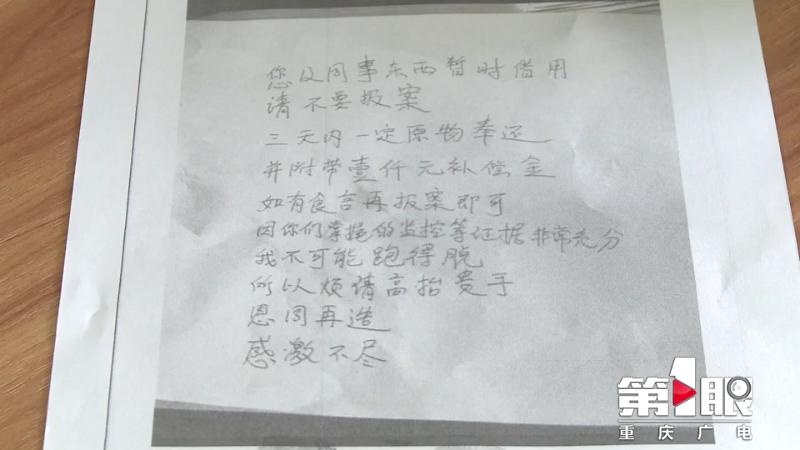 您及同事东西暂时借用
请不要报案
三天内一定原物奉还
并附带壹仟元补偿金
如有食言再报案即可
因你们掌握的监控等证据非常充分
我不可能跑得脱
所以烦请高抬贵手
恩同再造
感激不尽
第1眼
重庆广电